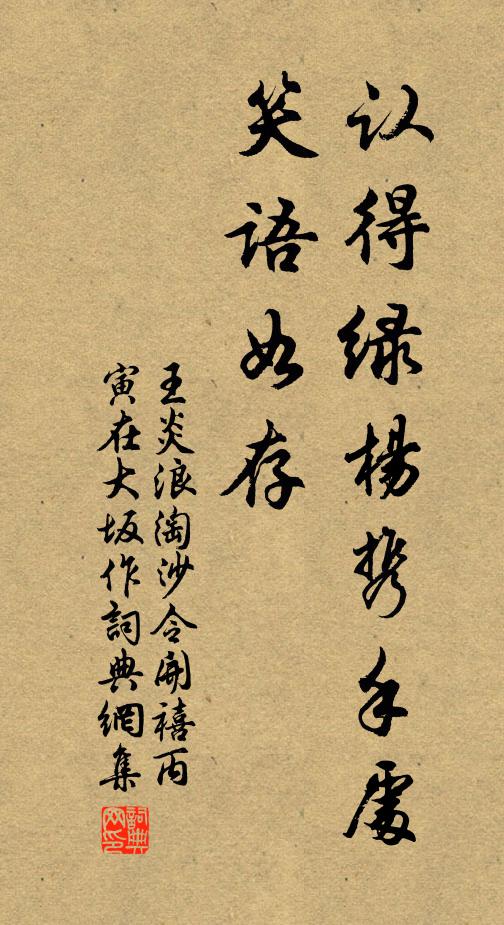 认得绿杨携手处
笑语如存
王炎浪淘沙令開禧丙
寅在大坂作詞典網集
詞典
网印